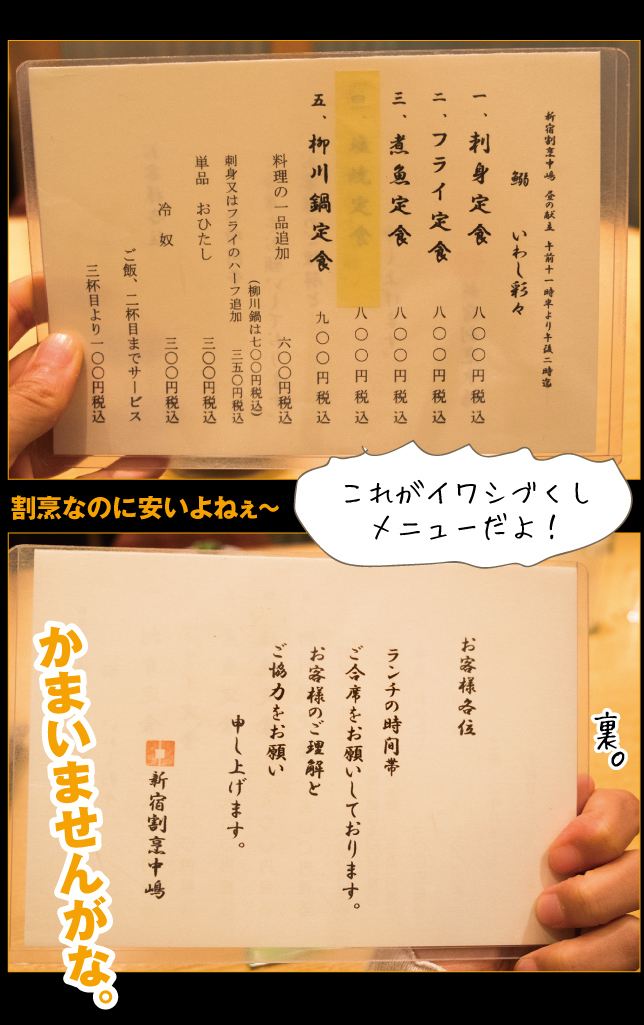 新宿割烹中嶋 昼の献立 午前十一時半より午後二時迄
鰯 いわし彩々
一、刺身定食 八〇〇円税込
二、フライ定食 八〇〇円税込
三、煮魚定食 八〇〇円税込
塩焼定食 八〇〇円税込
五、柳川鍋定食 九〇〇円税込
料理の一品追加 六〇〇円税込
(柳川鍋は七〇〇円税込)
刺身又はフライのハーフ追加 三五〇円税込
単品 おひたし 三〇〇円税込
冷奴 三〇〇円税込
ご飯、二杯目までサービス
三杯目より一〇〇円税込
割烹なのに安いよねぇ〜
これがイワシづくし
メニューだよ!
お客様各位
ランチの時間帯
ご合席をお願いしております。
お客様のご理解と
ご協力をお願い
申し上げます。
新宿割烹中嶋
裏。
かまいませんがな。